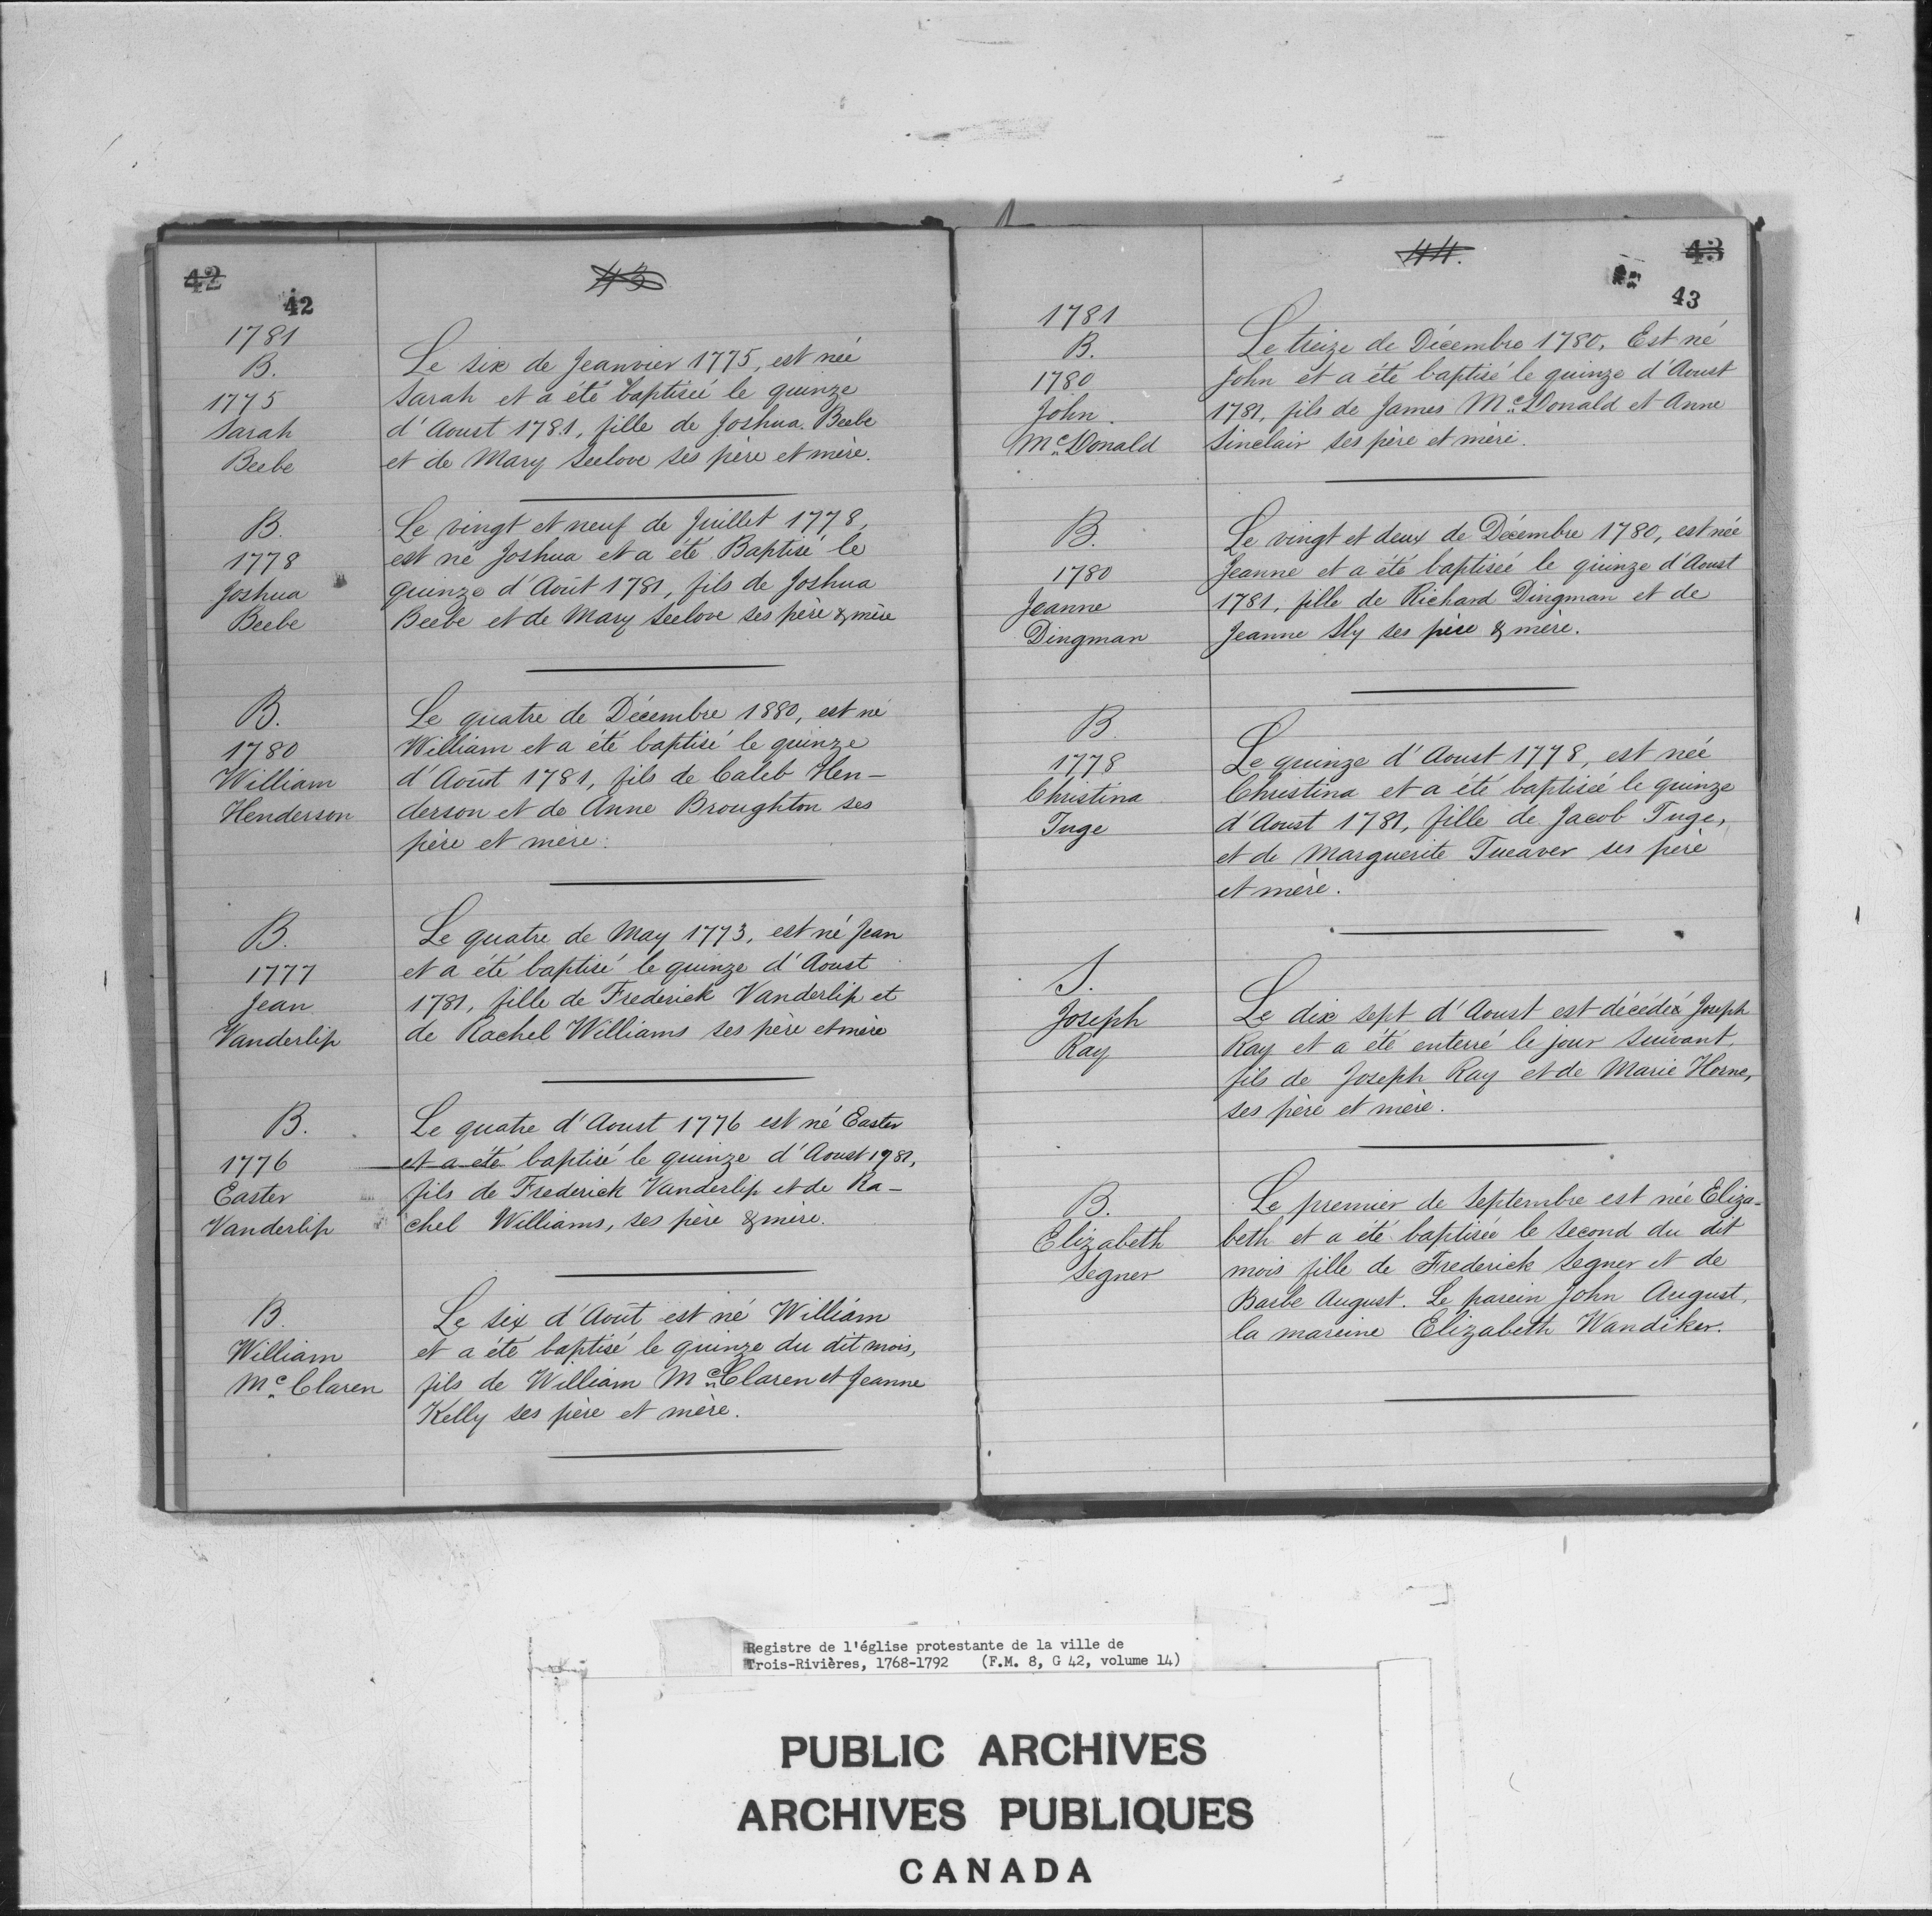 42
43
42
1781
B.
1775
Sarah
Beebe
Le six de Jeanvier 1775, est née
Sarah et a été baptiseé le quinze
d'Aoust 1781, fille de Joshua Beebe
et de Mary Seelove ses père et mère.
B.
1778
Joshua
Beebe
Le vingt et neuf de Juillet 1778,
est né Joshua et a été Baptisé le
quinze d'Août 1781, fils de Joshua
Beebe et de Mary Seelove ses père & mère
B.
1780
William
Henderson
Le quatre de Décembre 1880, est né
William et a été baptisé le quinze
d'Août 1781, fils de Caleb Hen-
derson et de Anne Broughton ses
père et mère.
B.
1777
Jean
Vanderlip
Le quatre de May 1773, est né Jean
et a été baptisé le quinze d'Aoust
1781, fille de Frederick Vanderlip et
de Rachel Williams ses père et mère
B.
1776
Easter
Vanderlip
Le quatre d'Aoust 1776 est né Easter
et a été baptisé le quinze d'Aoust 1781,
fils de Frederick Vanderlip et de Ra-
chel Williams, ses père & mère.
B.
William
Mc Claren
Le six d'Août est né William
et a été baptisé le quinze du dit mois,
fils de William McClaren et Jeanne
Kelly ses père et mère.
44.
43
43
1781
B.
1780
John
McDonald
Le treize de Décembre 1780. Est né
John et a été baptisé le quinze d'Aoust
1781, fils de James McDonald et Anne
Sinclair ses père et mère.
B.
1780
Jeanne
Dingman
Le vingt et deux de Décembre 1780, est née
Jeanne et a été baptiseé le quinze d'Aoust
1781, fille de Richard Dingman et de
Jeanne Sly ses père & mère.
B
1778
Christina
Tuge
Le quinze d'Aoust 1778, est née
Christina et a été baptiseé le quinze
d'Aoust 1781, fille de Jacob Tuge,
et de Marguerite Tueaver ses père
et mère.
S.
Joseph
Ray
Le dix sept d'Aoust est décédé Joseph
Ray et a été enterré le jour suivant,
fils de Joseph Ray et de Marie Horne,
ses père et mère.
B.
Elizabeth
Segner
Le premier de Septembre est née Eliza-
beth et a été baptisée le second du dit
mois fille de Frederick Segner et de
Barbe August. Le parein John August,
la mareine Elizabeth Wandiker.
Registre de l'église protestante de la ville de
Trois-Rivières, 1768-1792 (F.M. 8, G 42, volume 14)
PUBLIC ARCHIVES
ARCHIVES PUBLIQUES
CANADA